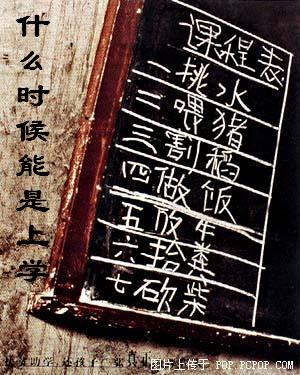 什么时候能是上学
课程表
一挑水
二喂猪
三割稻
四做饭
五放牛
六拾粪
七砍柴
图片上传于 POP.PCPOP.COM